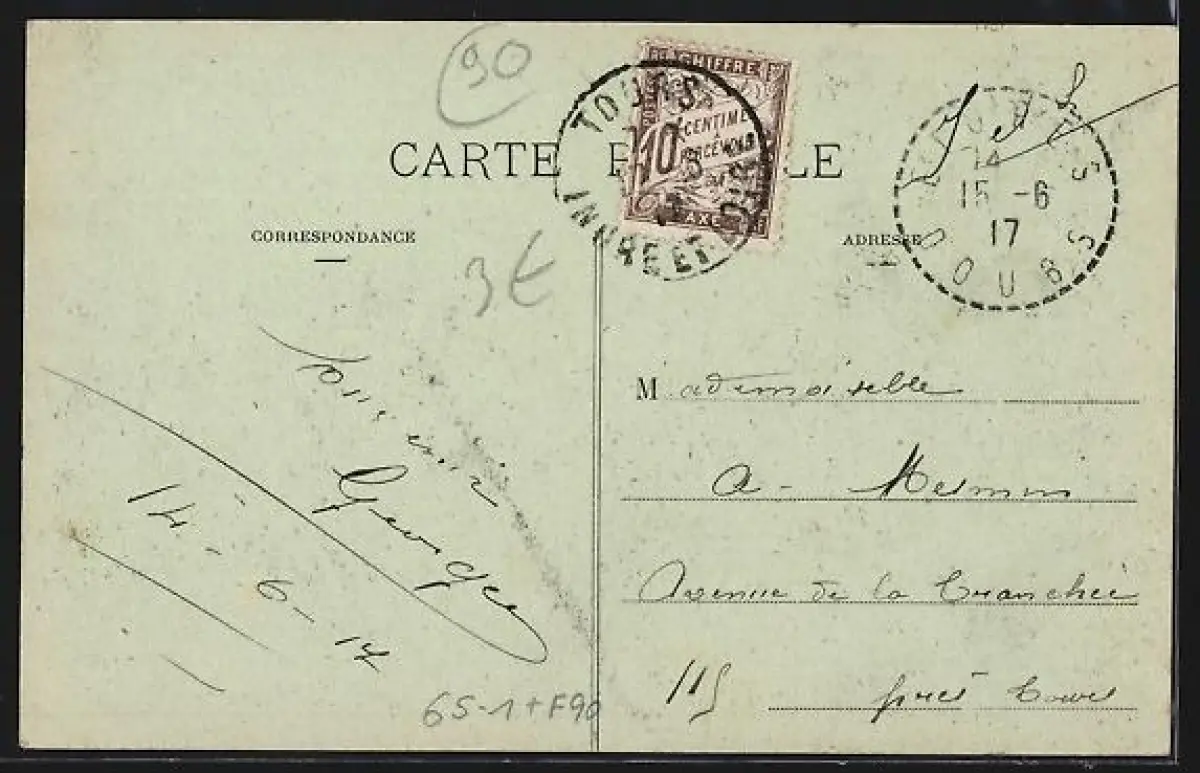 90
CHIFFRE
10 CENTIMES
À PERCEVOIR
TAXE
TOURS
INDRE ET LOIRE
CARTE POSTALE
14
15 -6
17
DOUBS
CORRESPONDANCE
ADRESSE
3€
Mademoiselle
A. Mesmin
Avenue de la Tranchée
115 près Tours
ton ami
Georges
14-6-17
65-1+F90